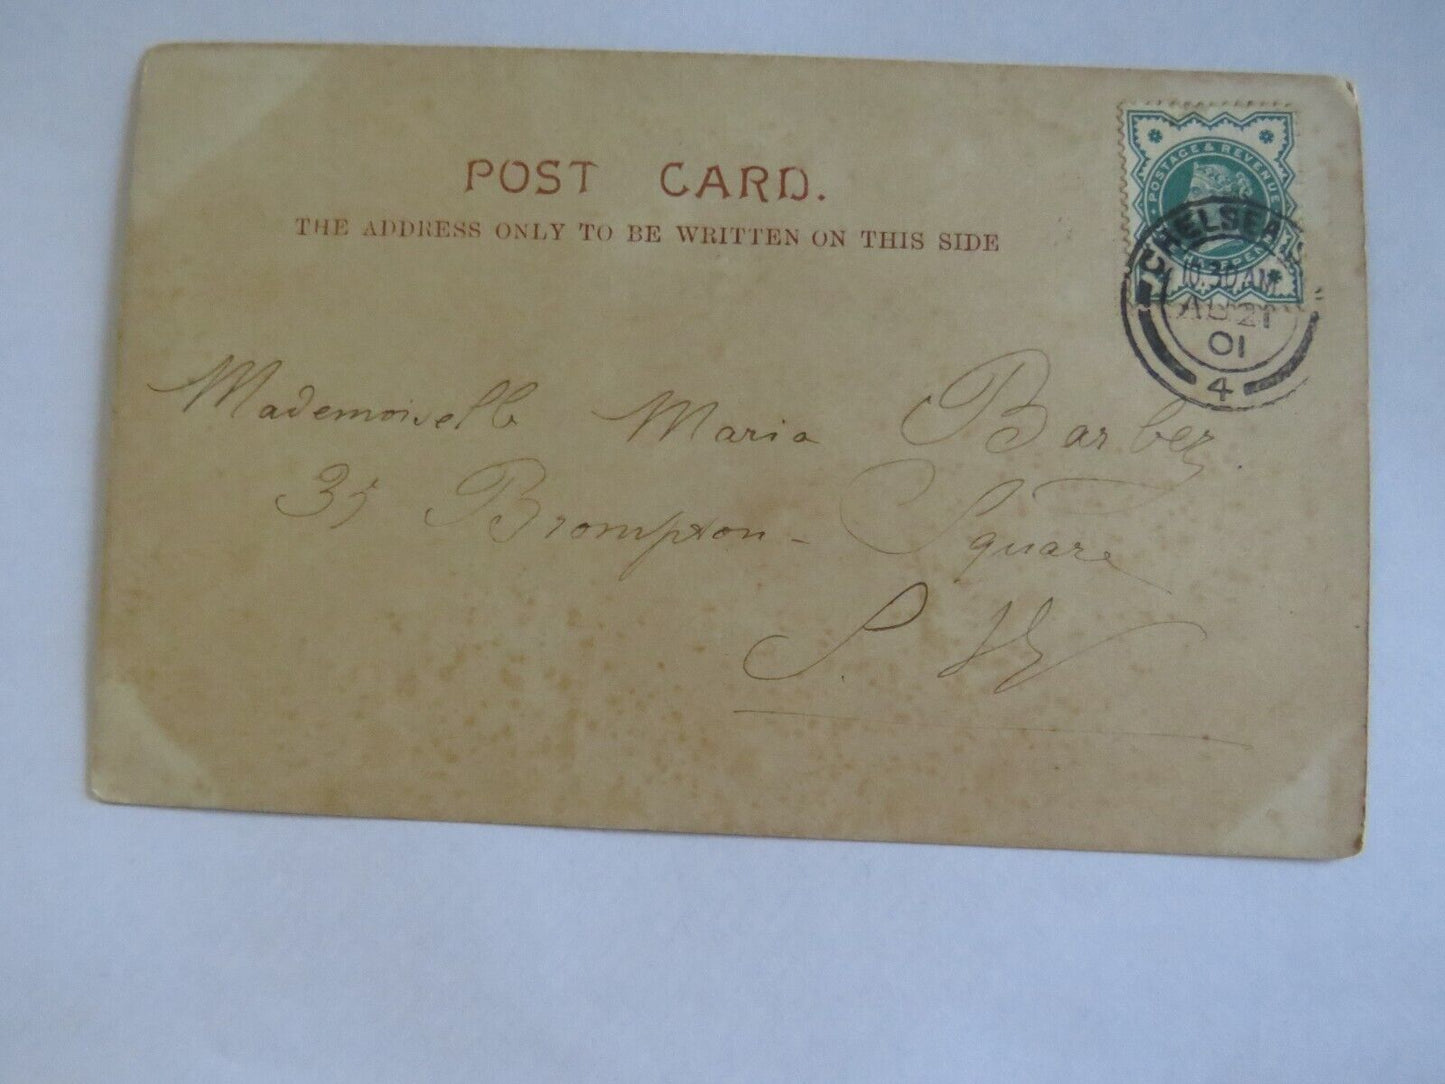 POST CARD.
THE ADDRESS ONLY TO BE WRITTEN ON THIS SIDE
POSTAGE & REVENUE
CHELSEA
10.30 AM
AU 21
01
4
Mademoiselle Maria Barbez.
35 Brompton - Square
S. W